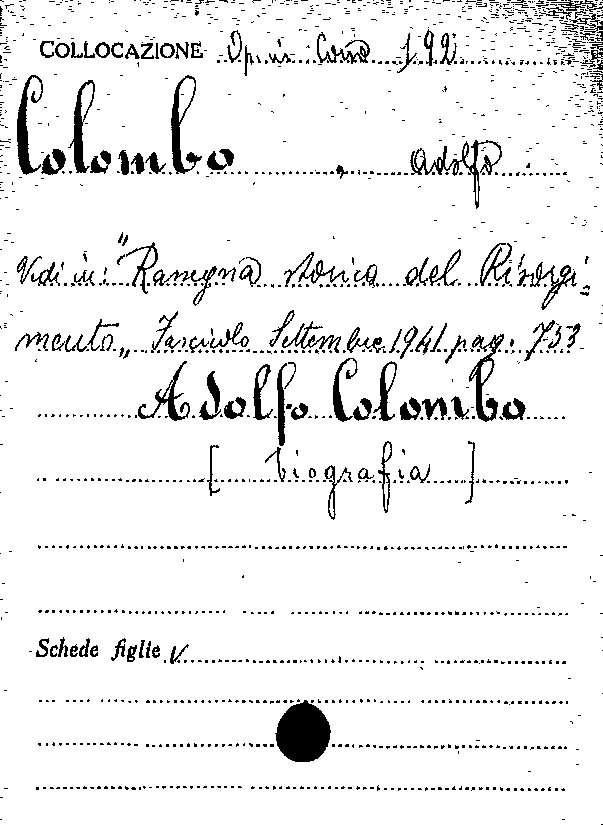 COLLOCAZIONE Op. in Cons 192
Colombo, Adolfo.
Vedi in: "Rassegna storica del Risorgi=
mento„ Fascicolo Settembre 1941 pag. 753
Adolfo Colombo
[ biografia ]
Schede figlie V